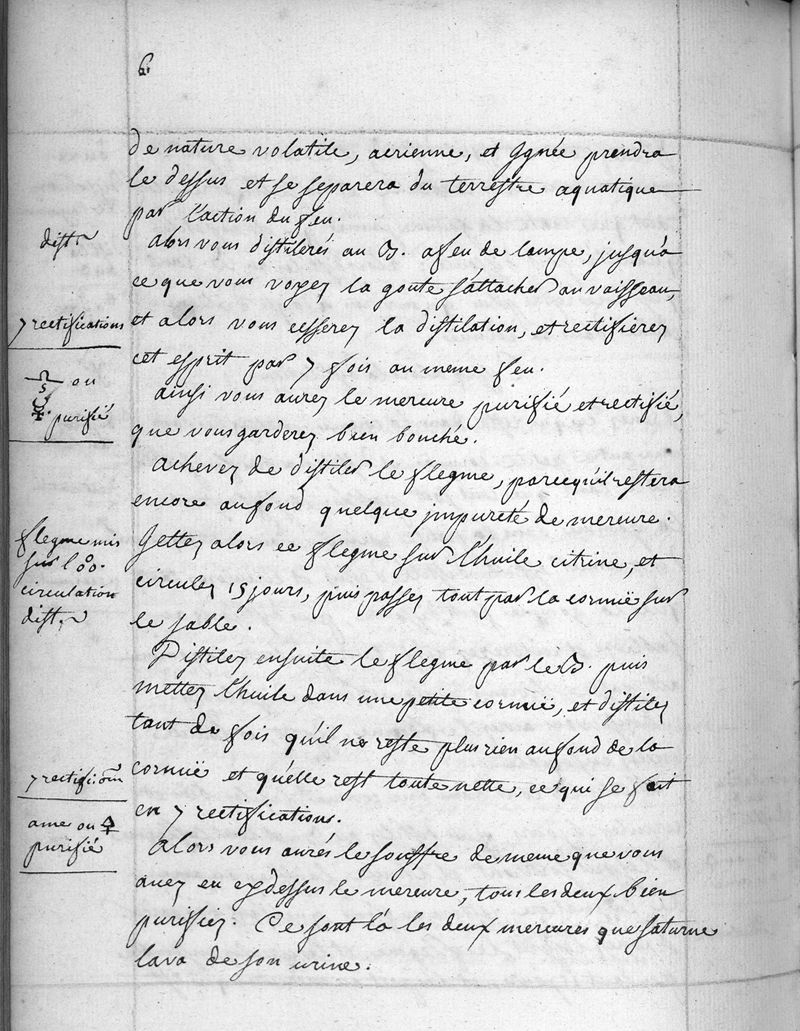 6
de nature volatile, aerienne, et Ignée prendra
le dessus et se separera du terrestre aquatique
par l'action du feu.
dist.
Alors vous distilerés au B. a feu de lampe, jusqu'a
ce que vous voyez la goute s'attacher au vaisseau,
7 rectifications
et alors vous cesserez la distilation, et rectifierez
cet esprit par 7 fois au meme feu.
ou
☿ purifié
ainsi vous aurez le mercure purifié et rectifié,
que vous garderez bien bouché.
Achevez de distiler le flegme, parcequ'il restera
encore au fond quelque impureté de mercure.
flegme mis
sur l'
circulation
dist.
Jettez alors ce flegme sur l'huile citrine, et
circulez 15 jours, puis passez tout par la cornuë sur
le sable.
Distilez ensuite le flegme par le B. puis
mettez l'huile dans une petite cornuë, et distilez
tant de fois qu'il ne reste plus rien au fond de la
7 rectific͞om
cornuë et qu'elle rest toute nette, ce qui se fait
en 7 rectifications.
ame ou 🜍
purifié
Alors vous aurés le souffre de meme que vous
avez eu cydessus le mercure, tous les deux bien
purifiez. Ce sont là les deux mercures que saturne
lava de son urine.